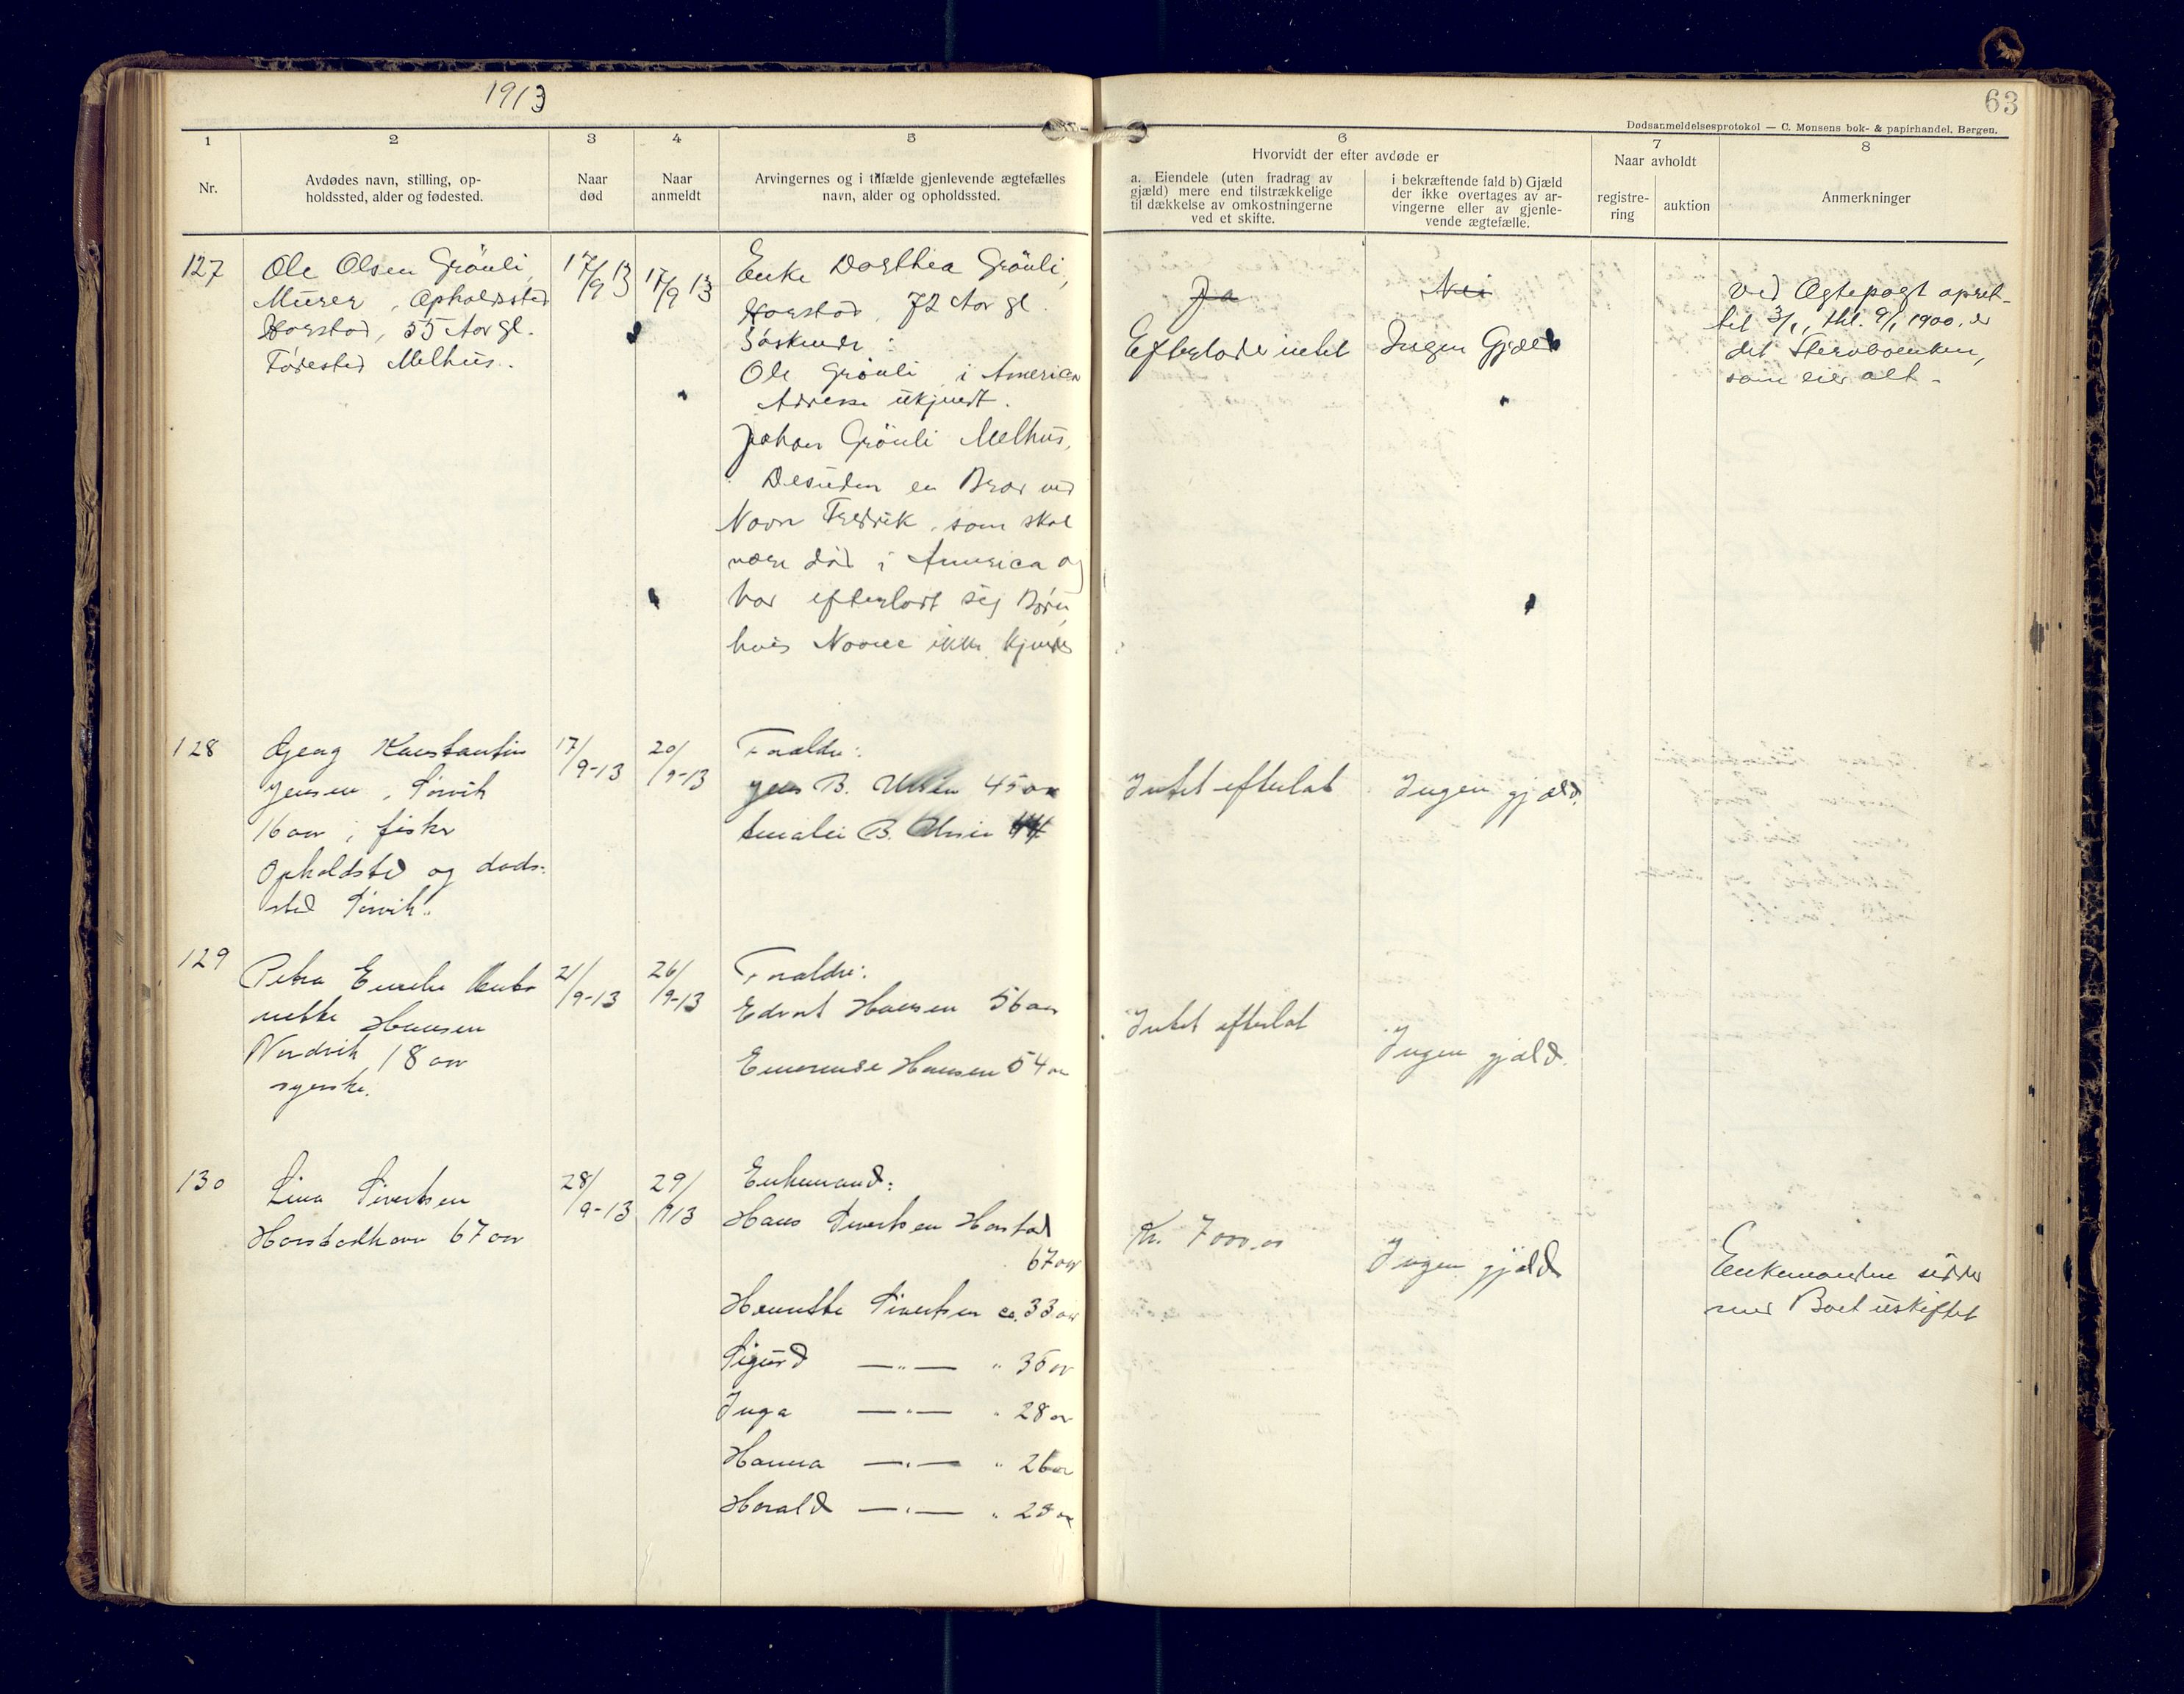 1913
63
Dødsanmeldelsesprotokol — C. Monsens bok- & papirhandel, Bergen.
1
2
3
4
5
6
7
8
Nr.
Avdødes navn, stilling, op-
holdssted, alder og fødested.
Naar
død
Naar
anmeldt
Arvingernes og i tilfælde gjenlevende ægtefælles
navn, alder og opholdssted.
Hvorvidt der efter avdøde er
a. Eiendele (uten fradrag av
gjæld) mere end tilstrækkelige
til dækkelse av omkostningerne
ved et skifte.
i bekræftende fald b) Gjæld
der ikke overtages av ar-
vingerne eller av gjenle-
vende ægtefælle.
Naar avholdt
registre-
ring
auktion
Anmerkninger
127
Ole Olsen Grönli,
Murer, Opholdssted
Harstad, 55 Aar gl.
Födested Melhus.
17/9 13
17/9 13
Enke Dorthea Grönli,
Harstad, 72 Aar gl.
Söskende:
Ole Grönli i America
Adresse ukjendt.
Johan Grönli Melhus,
Desuden en Bror ved
Navn Fredrik, som skal
være död i America og
har efterladt sig Börn,
hvis Navne ikke kjendes
Ja
Efterlader intet
Nei
Ingen Gjæld
Ved Ægtepagt opret-
tet 3/1, thl. 9/1 1900, er
det Stervboenken,
som eier alt.
128
Georg Konstantin
Jensen, Sörvik
16 aar, fisker
Opholdsted og döds-
sted Sörvik.
17/9-13
20/9-13
Forældre:
Jens B. Olsen 45 aar
Amalie B. Olsen 44
Intet efterlat
Ingen gjæld.
129
Petra Emelie
Hansen
18 aar
syerske.
21/9-13
26/9-13
Forældre:
Edvart Hansen 56 aar
Emerense Hansen 54 aar
Intet efterlat
Ingen gjæld.
130
Lina Sivertsen
Harstadhavn 67 aar
28/9-13
29/9 13
Enkemand:
Hans Sivertsen Harstad
67 aar
Sivertsen ca. 33 aar
Sigurd —"— " 35 aar
Inga —"— " 28 aar
Hanna —"— " 26 aar
Harald —"— " 23 aar
Kr. 7000,00
Ingen gjæld
Enkemanden sidder
med Boet uskiftet